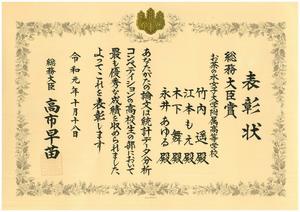 表彰状
総務大臣賞
お茶の水女子大学附属高等学校
竹内 遥 殿
江本 もえ 殿
木下 舞 殿
永井 あゆる 殿
あなたがたの論文は統計データ分析
コンペティションの高校生の部において
最も優秀な成績を収められました
よってこれを表彰します
令和元年十月十八日
総務大臣 高市早苗